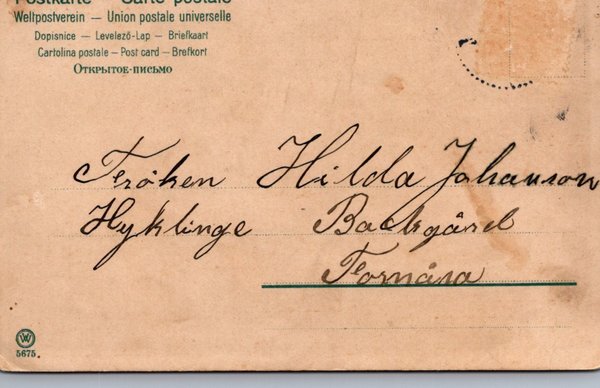 Postkarte — Carte postale
Weltpostverein — Union postale universelle
Dopisnice — Levelező-Lap — Briefkaart
Cartolina postale — Post card — Brefkort
Открытое-письмо
Fröken Hilda Johanson
Hyklinge Backgård
Fornåsa
W
5675.